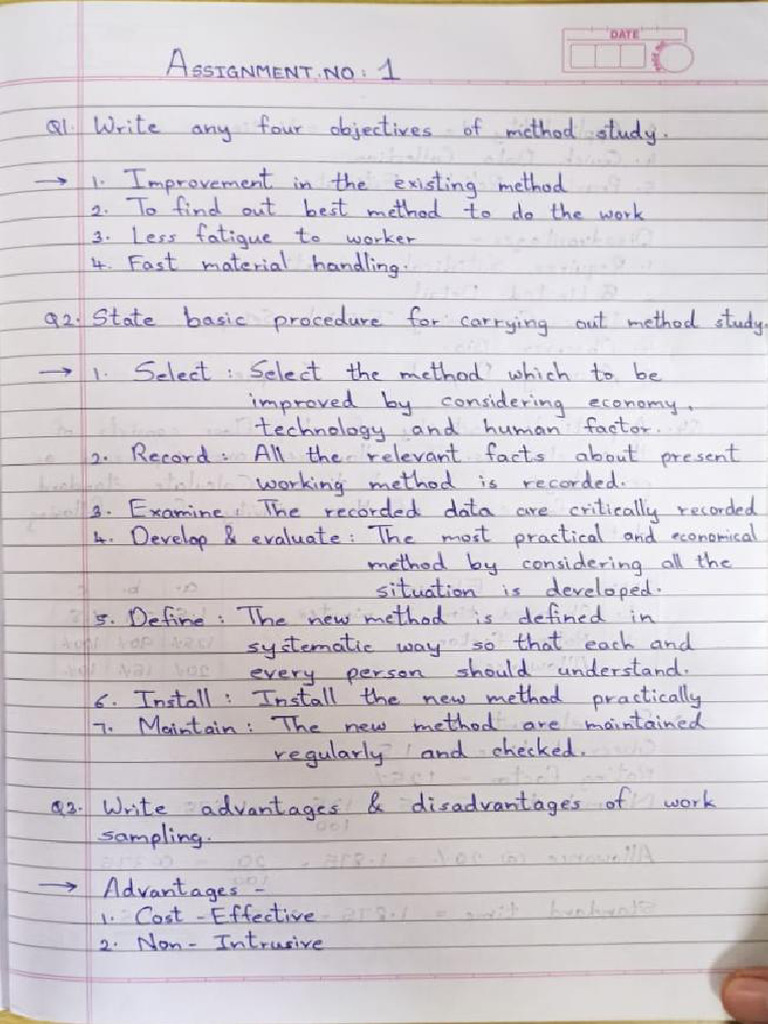 DATE
ASSIGNMENT NO: 1
Q1. Write any four objectives of method study.
→ 1. Improvement in the existing method
2. To find out best method to do the work
3. Less fatigue to worker
4. Fast material handling.
Q2. State basic procedure for carrying out method study.
→ 1. Select : Select the method which to be
improved by considering economy,
technology and human factor.
2. Record : All the relevant facts about present
working method is recorded.
3. Examine : The recorded data are critically recorded
4. Develop & evaluate : The most practical and economical
method by considering all the
situation is developed.
5. Define : The new method is defined in
systematic way so that each and
every person should understand.
6. Install : Install the new method practically
7. Maintain : The new method are maintained
regularly and checked.
Q3. Write advantages & disadvantages of work
sampling.
→ Advantages -
1. Cost-Effective
2. Non-Intrusive